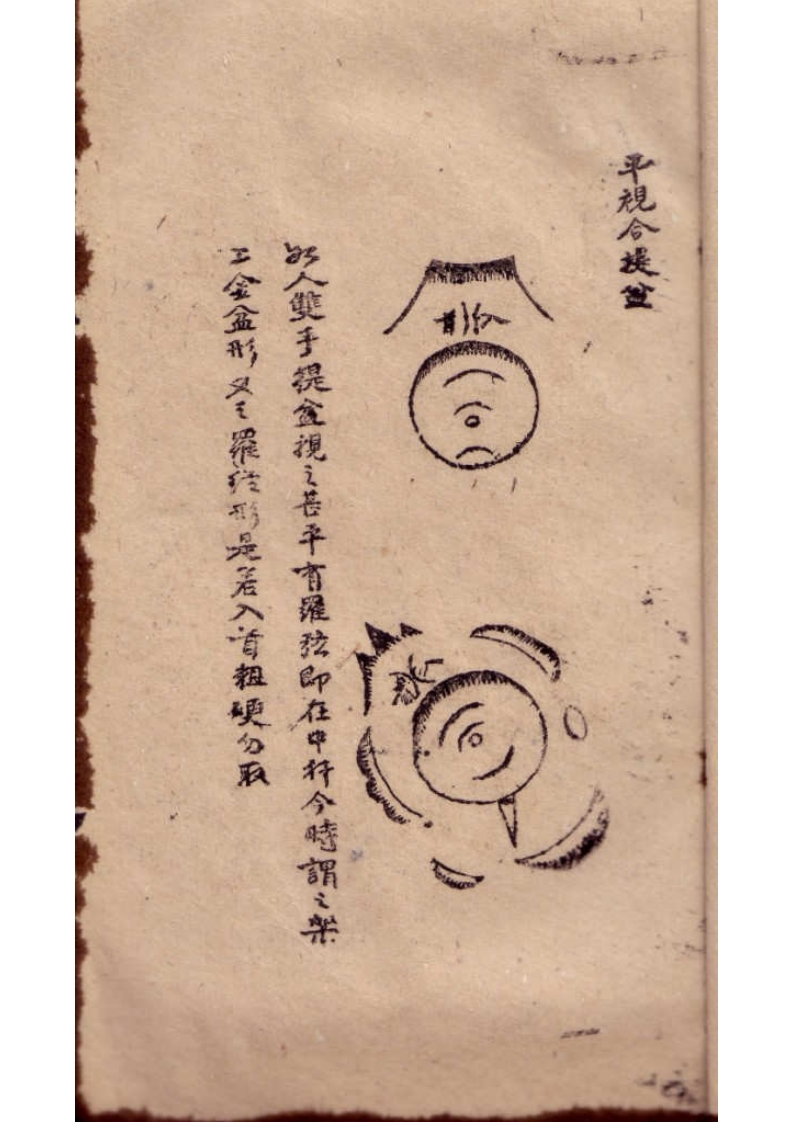 平視合提盆
如人雙手提盆視之甚平有羅弦即在中扦今時謂之架
上金盆形又云羅經形是若入首粗硬勿取